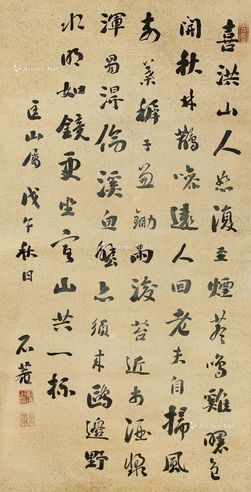 喜洪山人然復至煙蒼鳴雞曙色
開秋林鵲喚遠人回老夫自掃風
前葉稚子笠鋤雨後苔近市酒漿
渾易得傍溪魚蟹亦須來鷗邊野
水明如鏡更坐空山共一杯
匡山屬戊午秋日
石菴